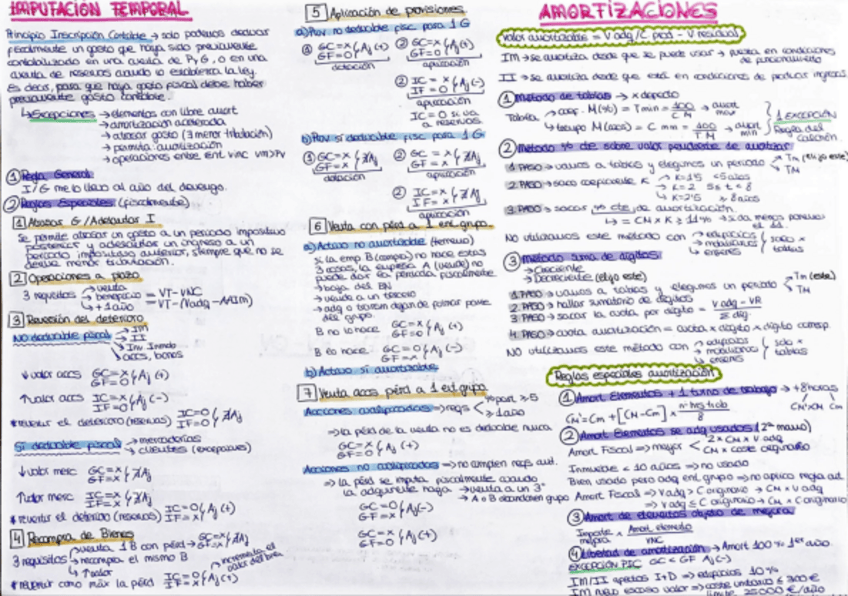 IMPUTACIÓN TEMPORAL
Principio Inscripción Contable → solo podemos deducir
fiscalmente un gasto que haya sido previamente
contabilizado en una cuenta de P y G, o en una
cuenta de reservas cuando lo establezca la ley
Es decir, para que haya gasto fiscal debe haber
previamente gasto contable.
↳ Excepciones → elementos con libre amort
→ amortización acelerada
→ atrasar gasto (3 menor tributación)
→ permuta amortización
→ operaciones entre ent vinc vm>Pv
① Regla General
I/G me lo llevo al año del devengo.
② Reglas Especiales (fiscalmente)
1 Atrasar G/Adelantar I
Se permite atrasar un gasto a un periodo impositivo
posterior y adelantar un ingreso a un
periodo impositivo anterior, siempre que no se
derive menor tributación.
2 Operaciones a plazo
3 requisitos → venta
→ beneficio
→ +1 año
= VT-VNC
= VT-(Vadq-AAIM)
3 Reversión del deterioro
NO deducible fiscal → IM
→ II
→ Inv. Inmob
→ accs, bonos
↓valor accs GC=X GF=0 Aj (+)
↑valor accs IC=X IF=0 Aj (-)
* revertir el deterioro (reservas) IC=0 IF=0 ∄Aj
SI deducible fiscal → mercaderías
→ clientes (excepciones)
↓valor merc GC=X GF=X ∄Aj
↑valor merc IC=X IF=X ∄Aj
* revertir el deterioro (reservas) IC=0 IF=X Aj (+)
4 Recompra de Bienes
3 requisitos → venta 1 B con pérd → GC=X GF=X ∄Aj
→ recompra el mismo B
→ ↑valor
* revertir como máx la pérd IC=0 IF=X Aj (+) → incremento el valor del bien
5 Aplicación de provisiones
a) Prov. no deducible fisc. para 1 G
① GC=X GF=0 Aj (+)
dotación
② GC=X GF=X Aj (-)
aplicación
② IC=X IF=0 Aj (-)
aplicación
IC=0 si va
a reservas
b) Prov si deducible fisc para 1 G
① GC=X GF=X ∄Aj
dotación
② GC=X GF=X ∄Aj
aplicación
② IC=X IF=X ∄Aj
aplicación
6 Venta con pérd a 1 ent. grupo
a) Activo no amortizable (terreno)
→ baja del BN
→ vende a un tercero
del grupo
B no lo hace GC=X GF=0 Aj (+)
B lo hace GC=0 GF=X Aj (-)
b) Activo sí amortizable
7 Venta accs pérd a 1 ent. grupo
Acciones cualificadas → reqs < % part ≥5
≥1 año
→ la pérd de la venta no es deducible nunca
GC=X GF=0 Aj (+)
Acciones no cualificadas → no cumplen reqs ant.
→ la pérd se imputa fiscalmente cuando
la adquirente haga → venta a un 3º
→ A o B abandonen grupo
GC=0 GF=X Aj (-)
GC=0 GF=X Aj (-)
AMORTIZACIONES
Valor amortizable = V adq/C prod - V residual
IM → se amortiza desde que se puede usar → puesta en condiciones
de funcionamiento
II → se amortiza desde que está en condiciones de producir ingresos
① Método de tablas → x defecto
Tabla → coef. M(%) = T min = 100/CM → amort max
→ tiempo M(años) = C mín = 100/TM → amort min
1 EXCEPCIÓN
Regla del
② Método % cte sobre valor pendiente de amortizar
1 PASO → vamos a tablas y elegimos un periodo → Tm (elijo este)
→ TM
2 PASO → saco coeficiente K → K=1'5 <5 años
→ K=2 5≤t<8
→ K=2'5 ≥8 años
3 PASO → sacar % cte de amortización
↳ = CM × K ≥ 11%
No utilizamos este método con → edificios
→ mobiliarios
→ enseres
solo x
tablas
③ Método suma de dígitos
→ Creciente
→ Decreciente (elijo este)
1 PASO → vamos a tablas y elegimos un periodo → Tm (este)
→ TM
2 PASO → hallar sumatorio de dígitos
3 PASO → sacar la cuota por dígito = V adq - VR / Σ díg.
4 PASO → cuota amortización = cuota x dígito x dígito corresp
NO utilizamos este método con → edificios
→ mobiliarios
→ enseres
solo x
tablas
Reglas especiales amortización
① Amort Elementos + 1 turno de trabajo → +8 horas
CM' = Cm + [CM - Cm] × nº hrs trab / 8
② Amort Elementos se adq usados (2ª mano)
Amort Fiscal → mayor < 2 × CM × V adq
CM × coste originario
Inmueble < 10 años → no usado
Bien usado pero adq ent. grupo → no aplico regla ant.
Amort Fiscal → Vadq > C originario → CM × V adq
→ V adq ≤ C originario → CM × C originario
③ Amort de elementos objeto de mejora
Importe mejora × Amort. elemento / VNC
④ Libertad de amortización → Amort 100% 1er año
EXCEPCIÓN PIC GC < GF Aj (-)
IM/II afectos I+D → edificios 10%
IM nuevo escaso valor → coste unitario ≤ 300 €
límite 25000 €/año